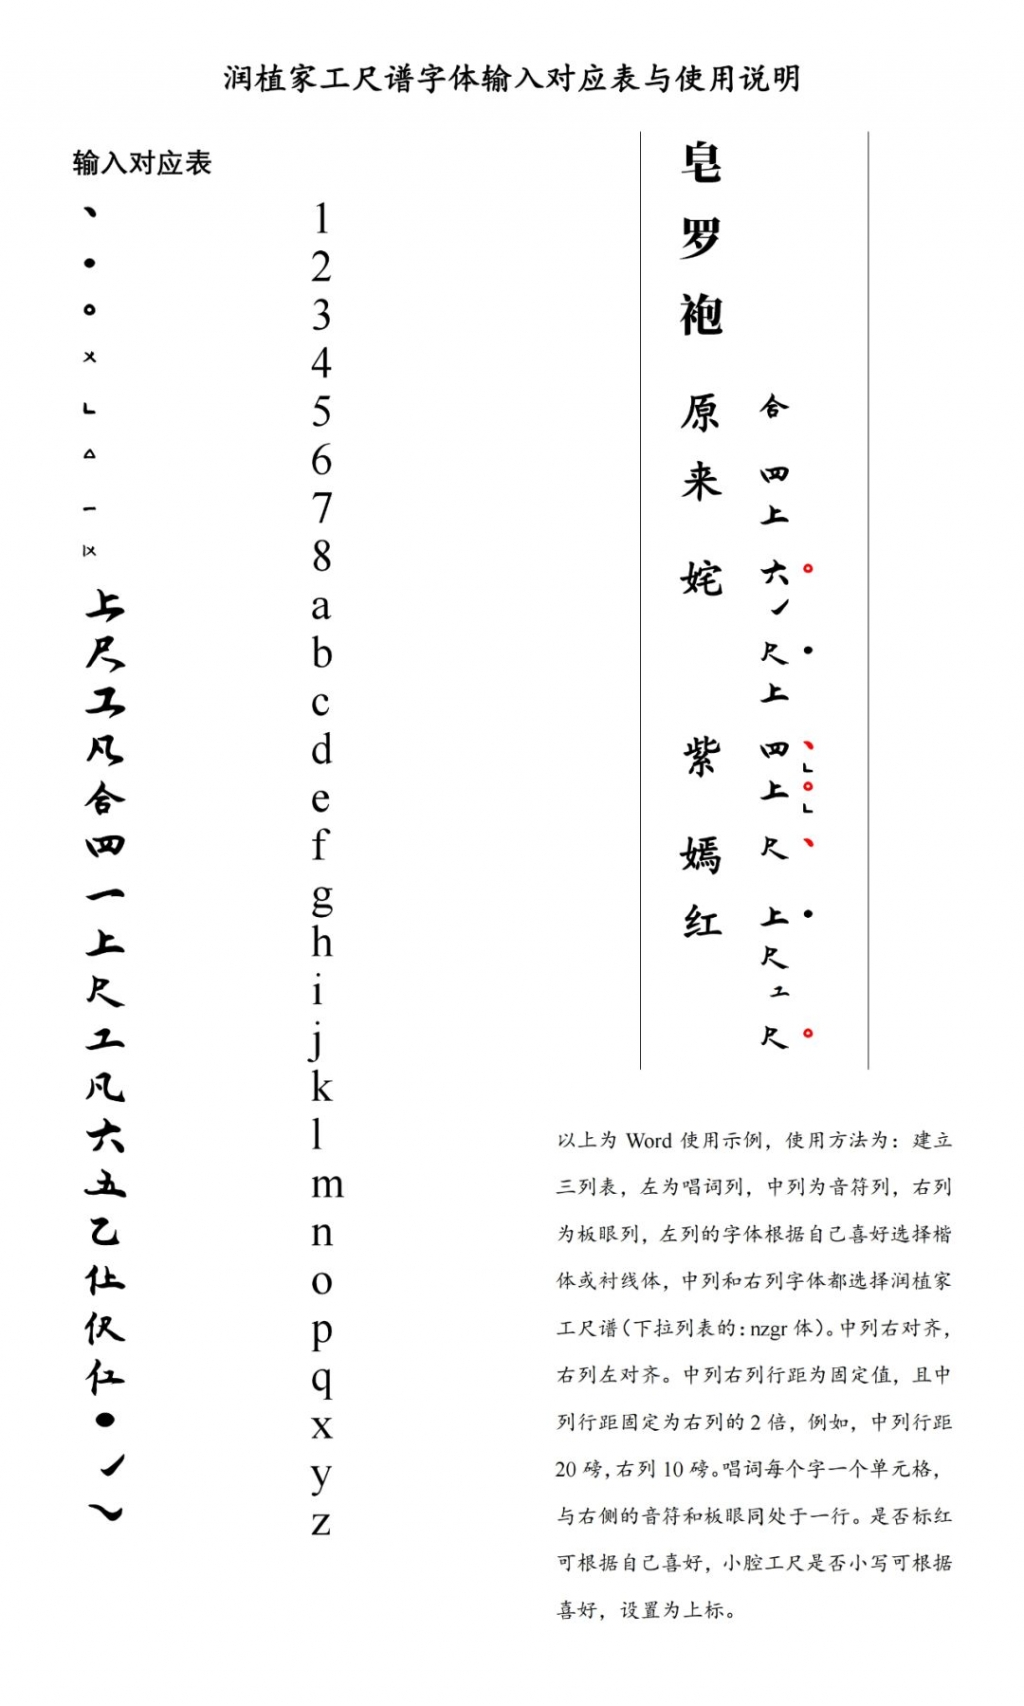 润植家工尺谱字体输入对应表与使用说明
输入对应表
、 1
• 2
○ 3
× 4
ㄴ 5
△ 6
一 7
8
上 a
尺 b
工 c
凡 d
合 e
四 f
一 g
上 h
尺 i
工 j
凡 k
六 l
五 m
乙 n
仩 o
伬 p
仜 q
• x
㇀ y
~ z
皂
罗
袍
原 合
来 四
上
姹 六 ○
㇀
尺 •
上
紫 四 、
ㄴ
上 ○
ㄴ
嫣 尺 、
红 上 •
尺
工
尺 ○
以上为 Word 使用示例，使用方法为：建立
三列表，左为唱词列，中列为音符列，右列
为板眼列，左列的字体根据自己喜好选择楷
体或衬线体，中列和右列字体都选择润植家
工尺谱（下拉列表的：nzgr 体）。中列右对齐，
右列左对齐。中列右列行距为固定值，且中
列行距固定为右列的 2 倍，例如，中列行距
20 磅，右列 10 磅。唱词每个字一个单元格，
与右侧的音符和板眼同处于一行。是否标红
可根据自己喜好，小腔工尺是否小写可根据
喜好，设置为上标。